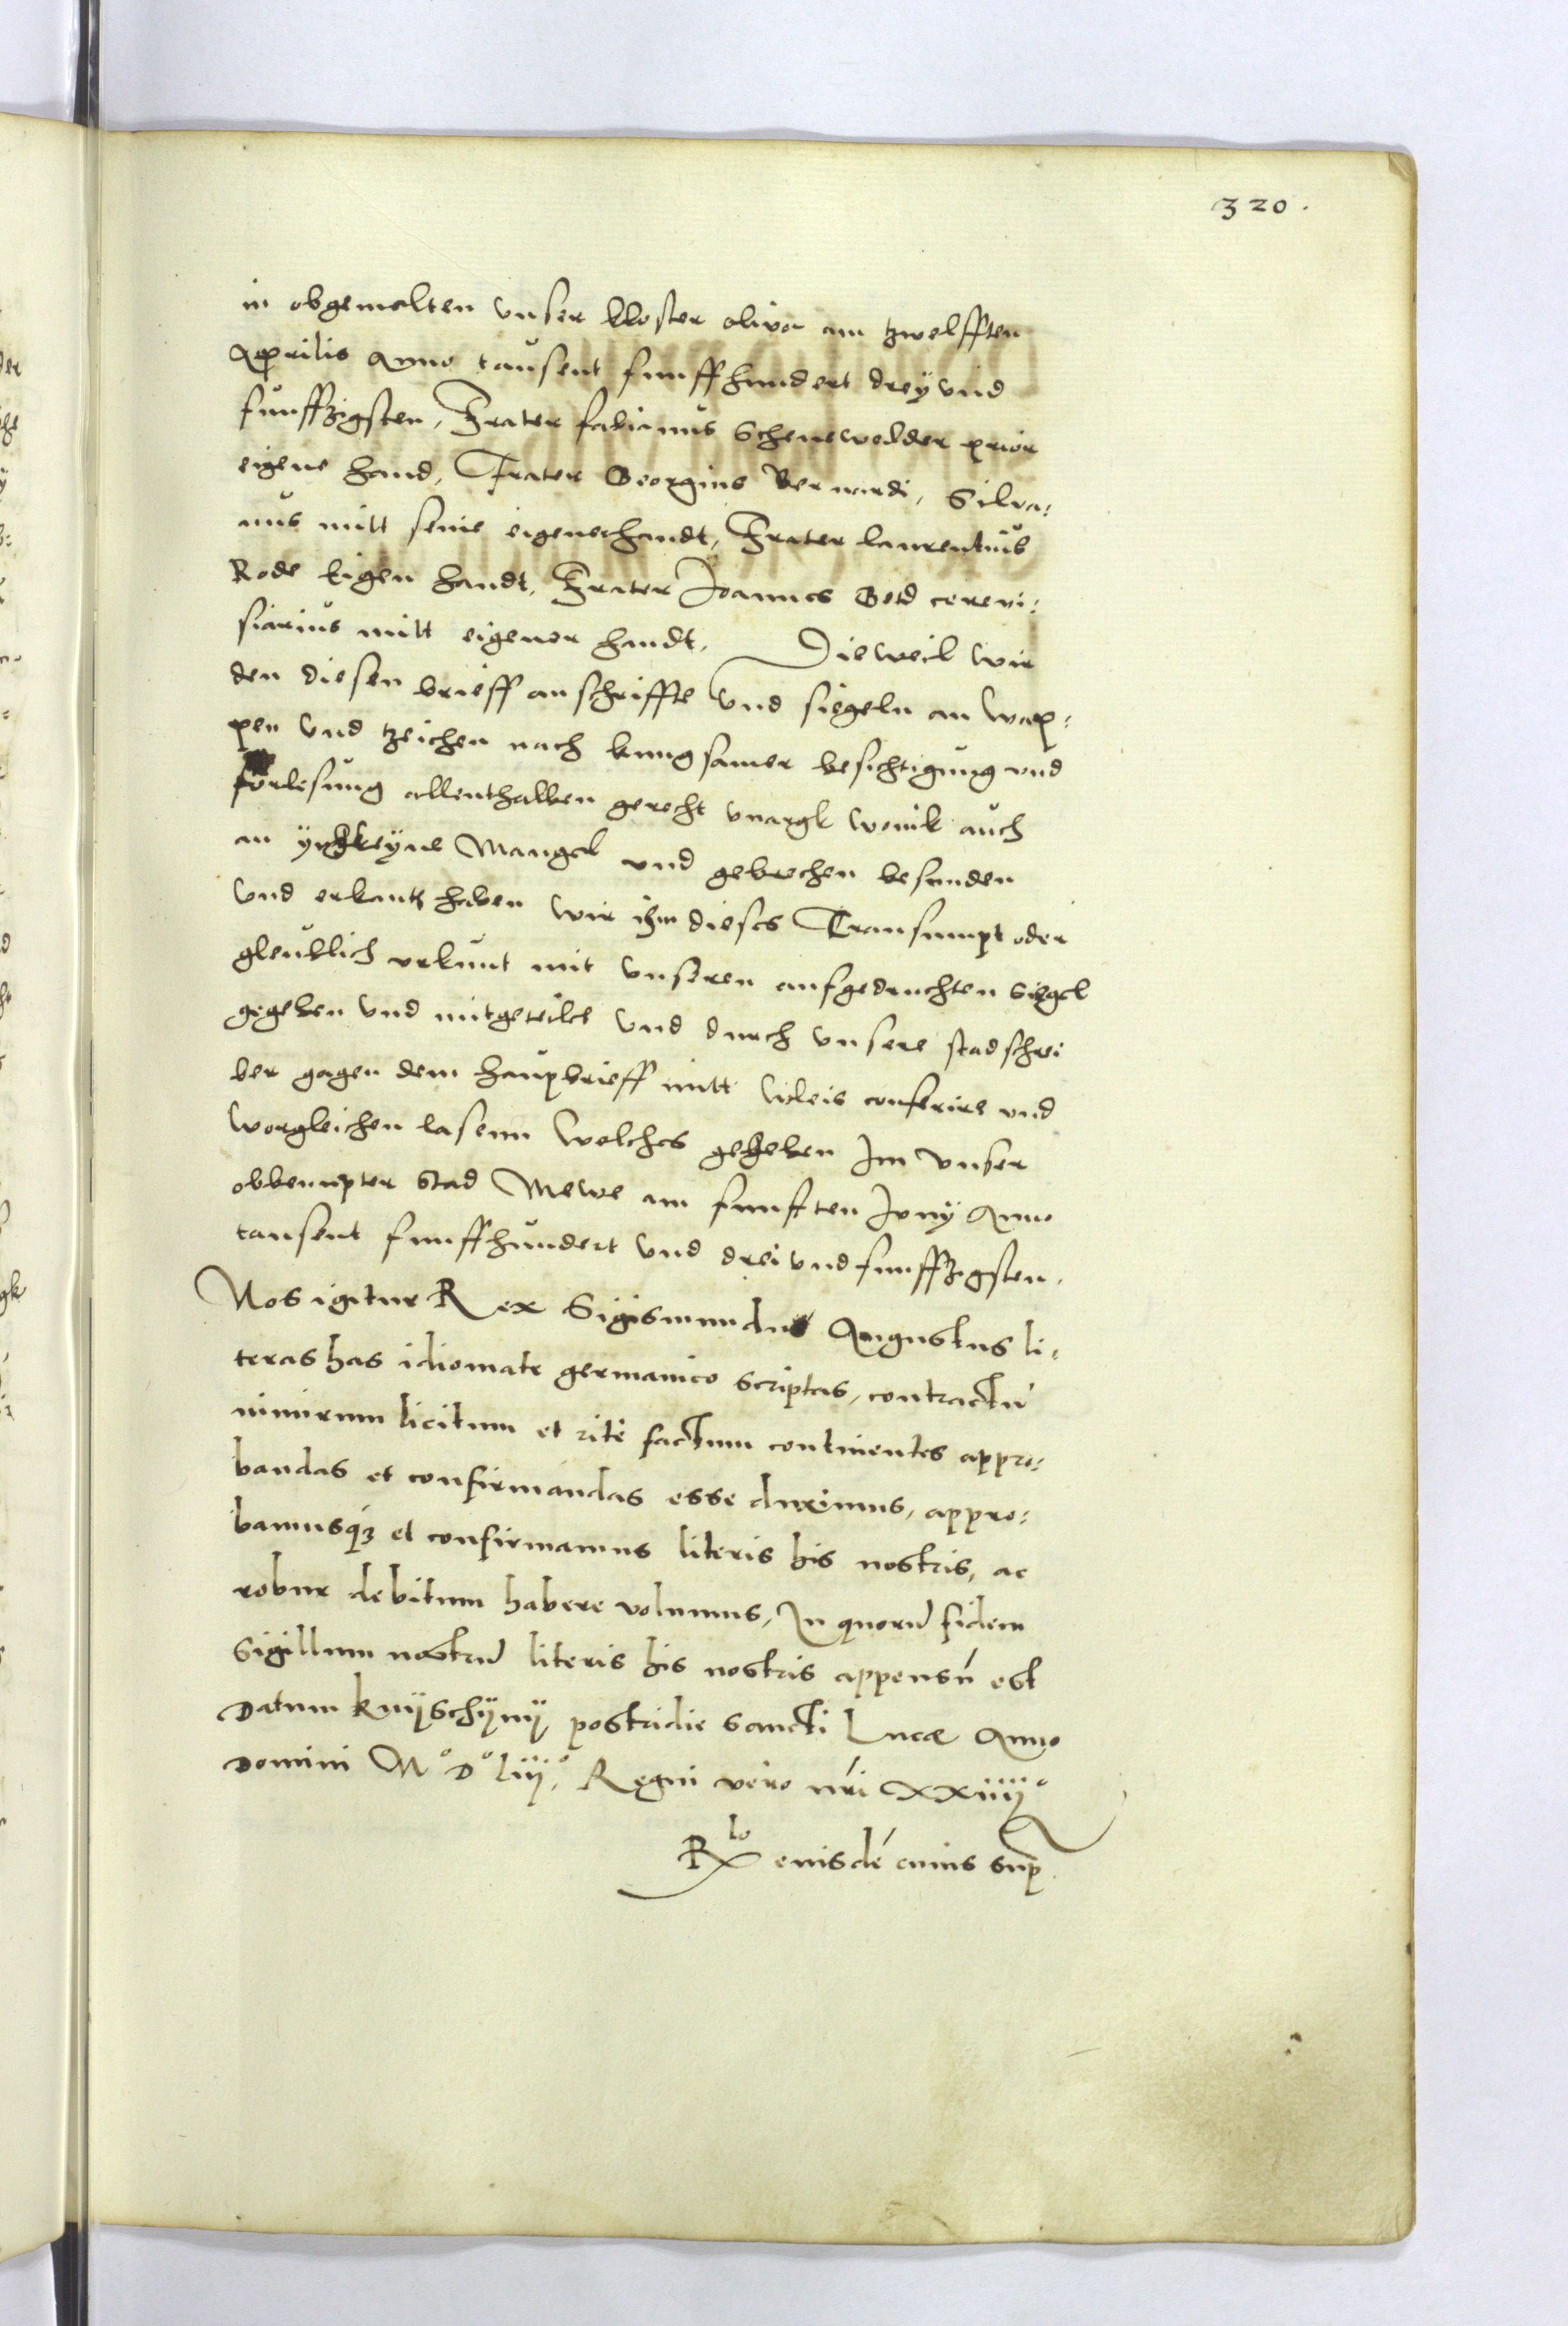 320.
in obgemelten unser kloster oliva am tzwelfften
Aprilis Anno tausent funffhundert drey und
funffzigsten, Frater fabianus Schenewelder prior
eigene hand, Frater Georgius Bernardi, Silva:
nus mitt seine eigenerhandt, Frater laurentius
Rode Eigen handt, Frater Joannes Gotd cerevi:
siarius mitt eigener handt, Die weil wir
den diesen brieff an schriffte und siegeln an wap:
pen und tzeichen nach knugsamer besichtigung und
forlesung allenthalben gerecht unargk wonik auch
an yngkeyne Mangel und gebrechen befunden
und erkant haben wir ihm dieses Transumpt oder
gleublich urkunt mit unseren aufgedruchten Siegel
gegeben und mitgeteilet und durch unsere stadschrei
ber gegen dem haupbrieff mitt vleis conferire und
vorgleichen lasenn welches gegeben Im unser
obbenupter Stad Mewe am funften Juny Anno
tausent funffhundert und drei und funffzigsten.
Nos igitur Rex Sigismundus Augustus li:
teras has idiomate germanico scriptas, contractu
nimirum licitum et rite factum continentes appro:
bandas et confirmandas esse duximus, appro:
bamusq; et confirmamus literis his nostris, ac
robur debitum habere volumus, In quoru fidem
Sigillum nostru literis his nostris appensu est
Datum knÿschÿnÿ postridie sancti Lucæ Anno
Domini M° D° liij°, Regni vero nri XXiiij°
R<sup>lo</sup> eiusde cuius sup